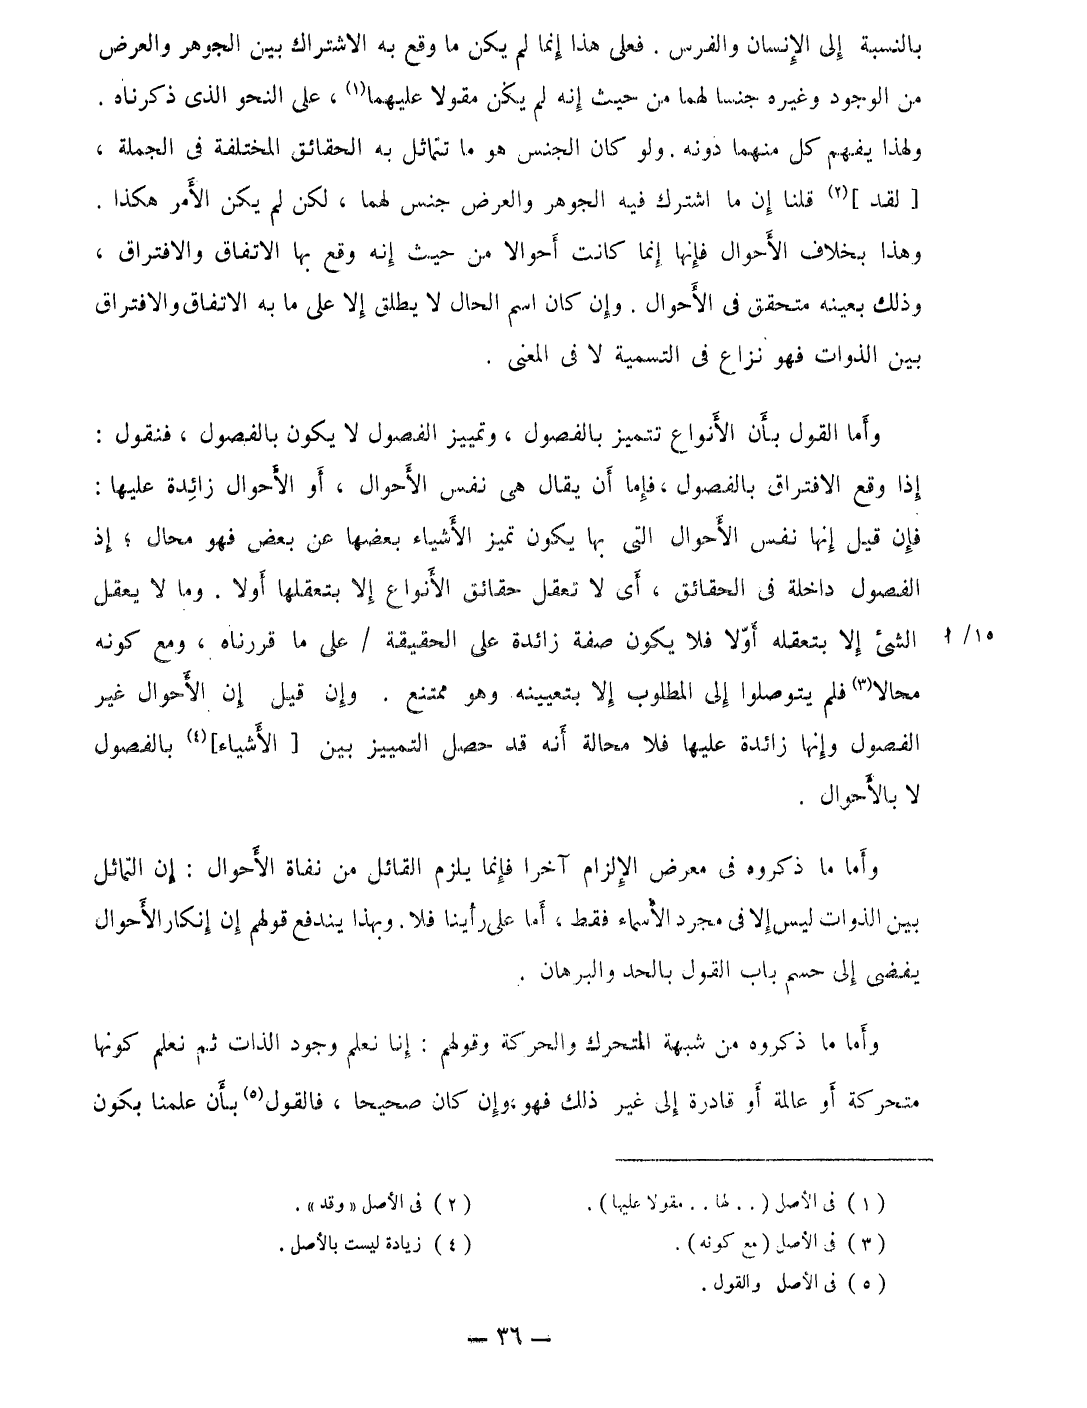 بالنسبة إلى الإنسان والفرس . فعلى هذا إنما لم يكن ما وقع به الاشتراك بين الجوهر والعرض
من الوجود وغيره جنسا لهما من حيث إنه لم يكن مقولا عليهما(١) ، على النحو الذى ذكرناه .
ولهذا يفهم كل منهما دونه . ولو كان الجنس هو ما تتماثل به الحقائق المختلفة فى الجملة ،
[ لقد ](٢) قلنا إن ما اشترك فيه الجوهر والعرض جنس لهما ، لكن لم يكن الأَمر هكذا .
وهذا بخلاف الأَحوال فإنها إنما كانت أَحوالا من حيث إنه وقع بها الاتفاق والافتراق ،
وذلك بعينه متحقق فى الأَحوال . وإن كان اسم الحال لا يطلق إلا على ما به الاتفاق والافتراق
بين الذوات فهو نزاع فى التسمية لا فى المعنى .
وأَما القول بأَن الأَنواع تتميز بالفصول ، وتمييز الفصول لا يكون بالفصول ، فنقول :
إذا وقع الافتراق بالفصول ، فإما أَن يقال هى نفس الأَحوال ، أَو الأَحوال زائدة عليها :
فإن قيل إنها نفس الأَحوال التى بها يكون تميز الأَشياء بعضها عن بعض فهو محال ؛ إذ
الفصول داخلة فى الحقائق ، أَى لا تعقل حقائق الأَنواع إلا بتعقلها أَولا . وما لا يعقل
الشئ إلا بتعقله أَوّلا فلا يكون صفة زائدة على الحقيقة / على ما قررناه ، ومع كونه ١٥/ أ
محالا(٣) فلم يتوصلوا إلى المطلوب إلا بتعيينه وهو ممتنع . وإن قيل إن الأَحوال غير
الفصول وإنها زائدة عليها فلا محالة أَنه قد حصل التمييز بين [ الأَشياء](٤) بالفصول
لا بالأَحوال .
وأَما ما ذكروه فى معرض الإلزام آخرا فإنما يلزم القائل من نفاة الأَحوال : إن التماثل
بين الذوات ليس إلا فى مجرد الأَسماء فقط ، أَما على رأينا فلا . وبهذا يندفع قولهم إن إنكار الأَحوال
يفضى إلى حسم باب القول بالحد والبرهان .
وأَما ما ذكروه من شبهة المتحرك والحركة وقولهم : إنا نعلم وجود الذات ثم نعلم كونها
متحركة أَو عالمة أَو قادرة إلى غير ذلك فهو ، وإن كان صحيحا ، فالقول(٥) بأَن علمنا بكون
(١) فى الأصل (. . لها . . مقولا عليها ) . (٢) فى الأصل « وقد » .
(٣) فى الأصل (مع كونه) . (٤) زيادة ليست بالأصل .
(٥) فى الأصل والقول .
— ٣٦ —